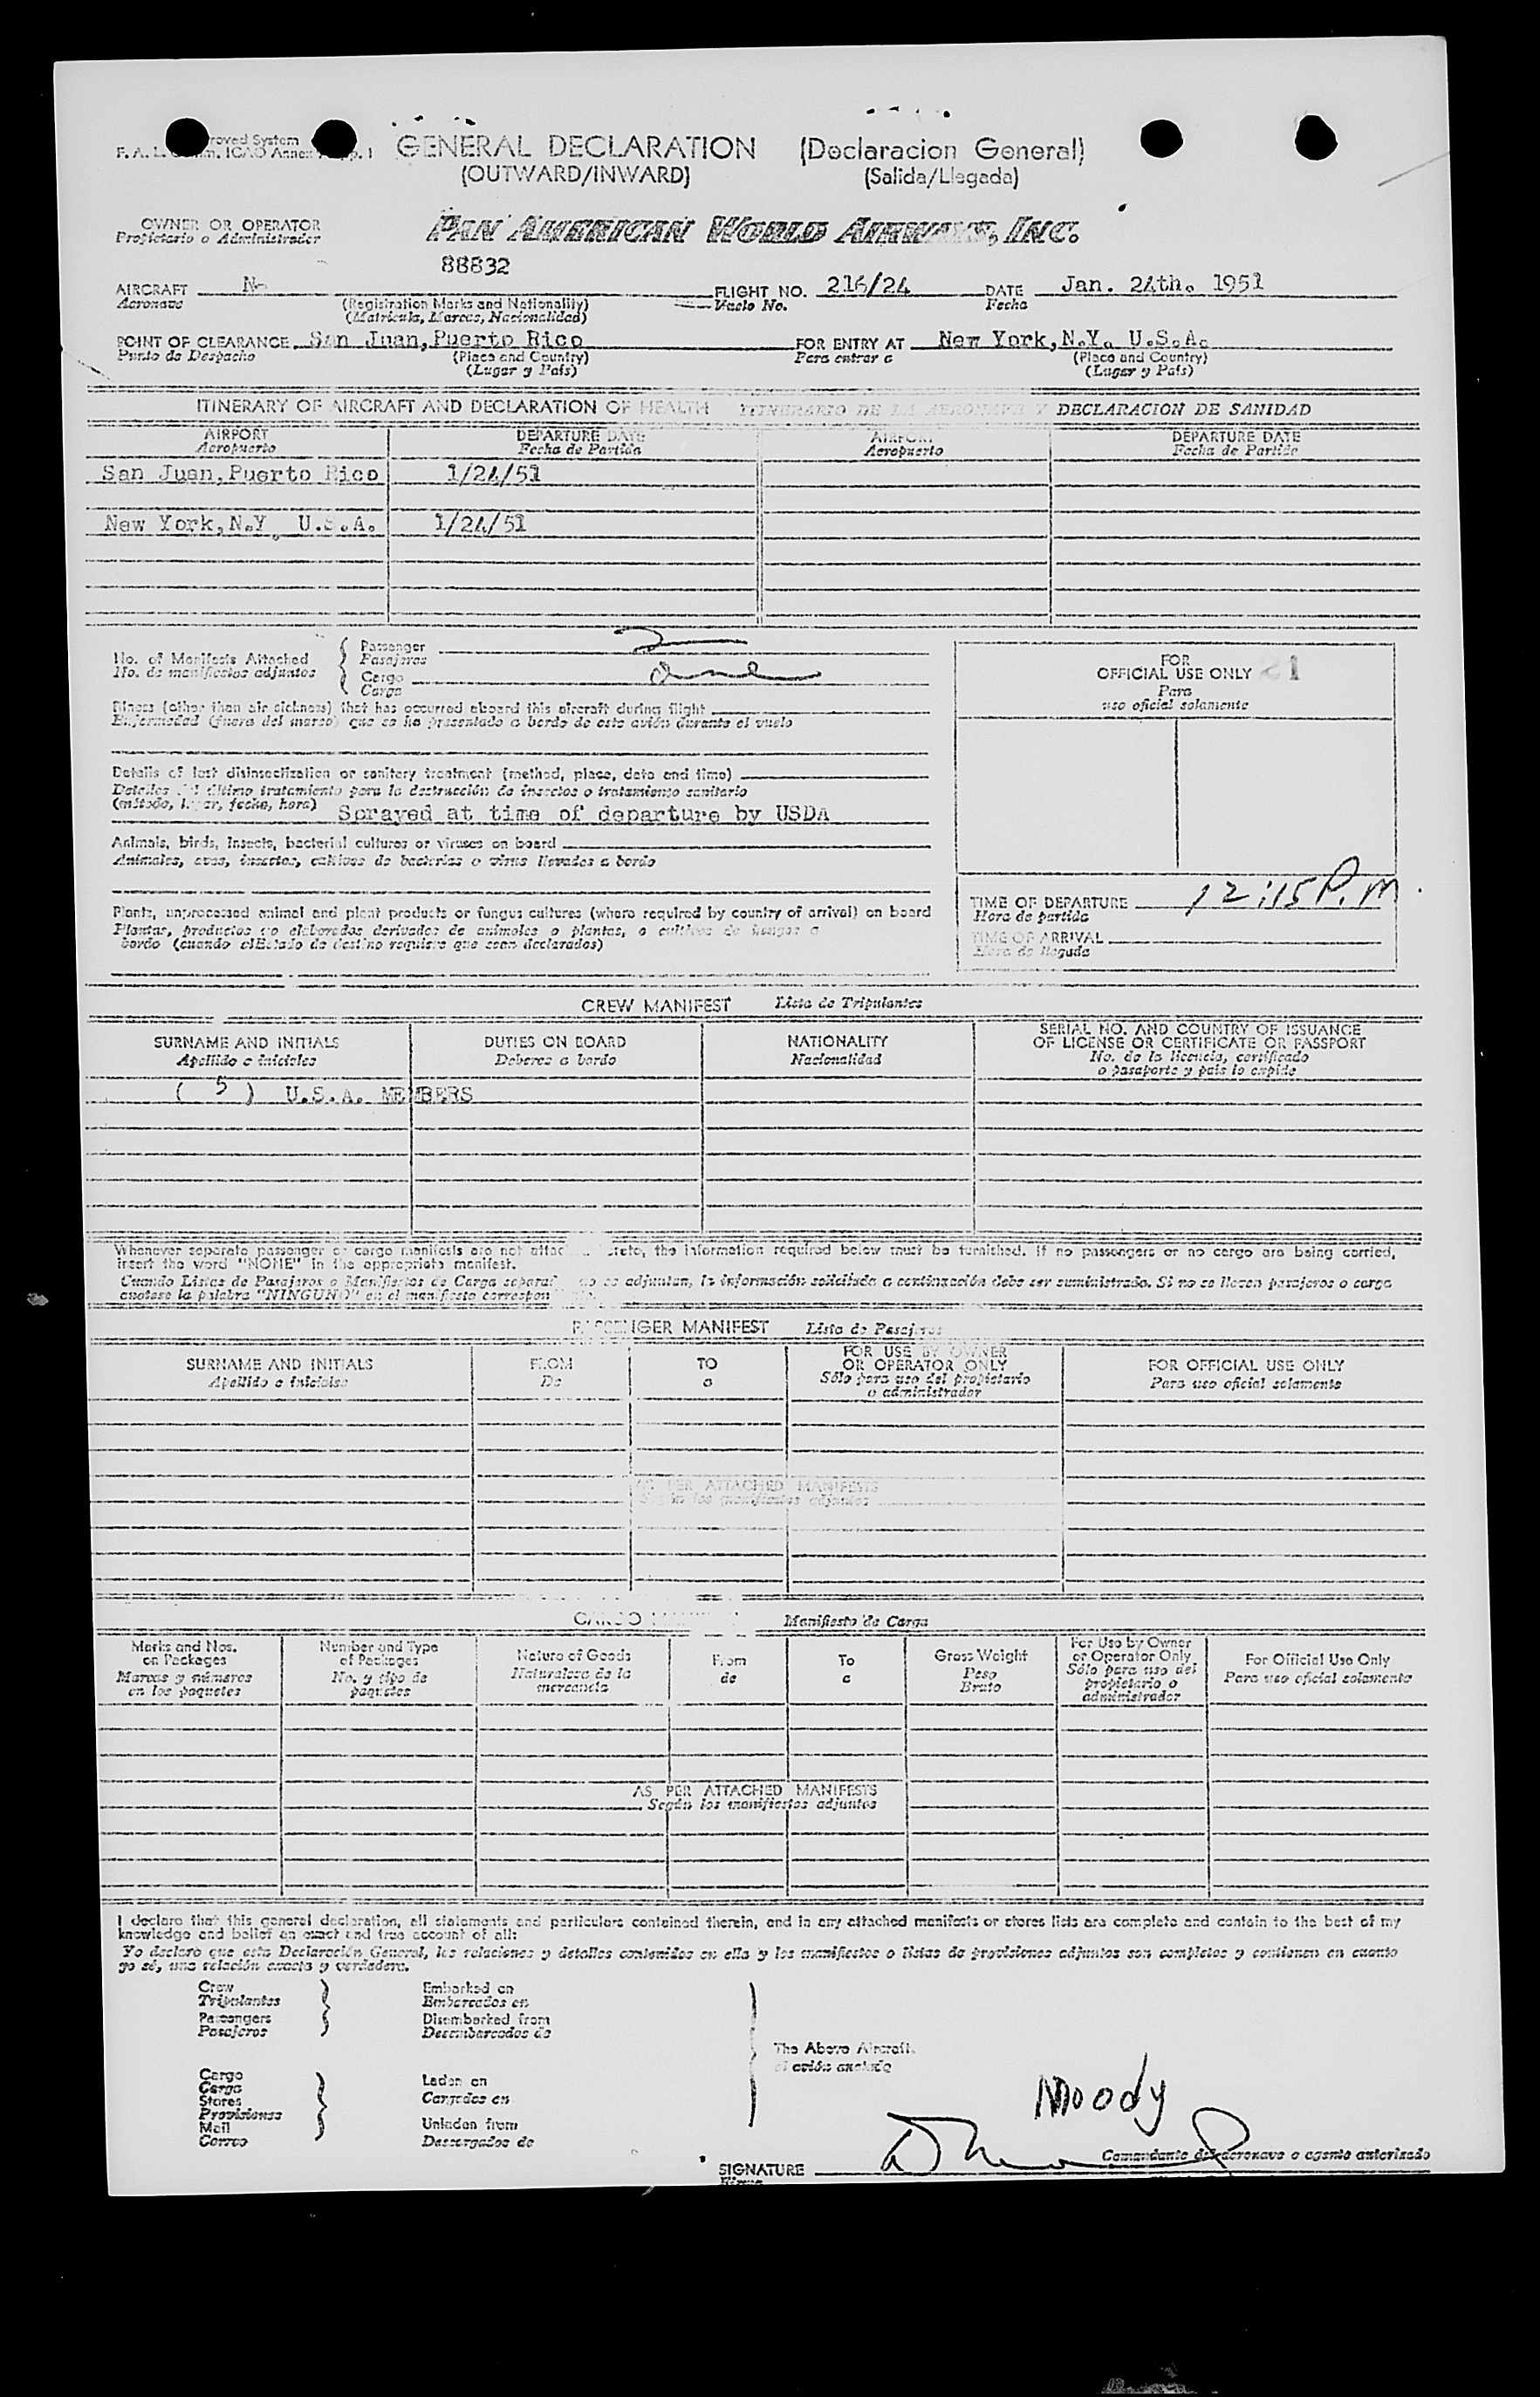 roved System
F. A. L. mm. ICAO Annex p. 1
GENERAL DECLARATION (Declaracion General)
(OUTWARD/INWARD) (Salida/Llegada)
OWNER OR OPERATOR PAN AMERICAN WORLD AIRWAYS, INC.
Propietario o Administrador
88832
AIRCRAFT N- FLIGHT NO. 216/24 DATE Jan. 24th. 1951
Aeronave (Registration Marks and Nationality) Vuelo No. Fecha
(Matricula, Marcas, Nacionalidad)
POINT OF CLEARANCE San Juan, Puerto Rico FOR ENTRY AT New York, N.Y. U.S.A.
Punto de Despacho (Place and Country) Para entrar a (Place and Country)
(Lugar y Pais) (Lugar y Pais)
ITINERARY OF AIRCRAFT AND DECLARATION OF HEALTH ITINERARIO DE LA AERONAVE Y DECLARACION DE SANIDAD
AIRPORT DEPARTURE DATE AIRPORT DEPARTURE DATE
Aeropuerto Fecha de Partida Aeropuerto Fecha de Partida
San Juan, Puerto Rico 1/24/51
New York, N.Y. U.S.A. 1/24/51
No. of Manifests Attached Passenger 2
No. de manifiestos adjuntos Pasajeros
Cargo
Carga
FOR
OFFICIAL USE ONLY 21
Para
uso oficial solamente
Illness (other than air sickness) that has occurred aboard this aircraft during flight
Enfermedad (fuera del mareo) que se ha presentado a bordo de este avión durante el vuelo
Details of last disinsectization or sanitary treatment (method, place, date and time)
Detalles del último tratamiento para la destrucción de insectos o tratamiento sanitario
(método, lugar, fecha, hora) Sprayed at time of departure by USDA
Animals, birds, insects, bacterial cultures or viruses on board
Animales, aves, insectos, cultivos de bacterias o virus llevados a bordo
Plants, unprocessed animal and plant products or fungus cultures (where required by country of arrival) on board
Plantas, productos no elaborados derivados de animales o plantas, o cultivos de hongos a
bordo (cuando el Estado de destino requiere que sean declarados)
TIME OF DEPARTURE 12:15 P.m.
Hora de partida
TIME OF ARRIVAL
Hora de llegada
CREW MANIFEST Lista de Tripulantes
SURNAME AND INITIALS DUTIES ON BOARD NATIONALITY SERIAL NO. AND COUNTRY OF ISSUANCE
OF LICENSE OR CERTIFICATE OR PASSPORT
Apellido e iniciales Deberes a bordo Nacionalidad No. de la licencia, certificado
o pasaporte y pais lo expide
( 5 ) U.S.A. MEMBERS
Whenever separate passenger or cargo manifests are not attac reto, the information required below must be furnished. If no passengers or no cargo are being carried,
insert the word "NONE" in the appropriate manifest.
Cuando Listas de Pasajeros o Manifiestos de Carga separa no se adjuntan, la información solicitada a continuación debe ser suministrada. Si no se llevan pasajeros o carga
anotese la palabra "NINGUNO" en el manifiesto correspon
PASSENGER MANIFEST Lista de Pasajeros
SURNAME AND INITIALS FROM TO FOR USE BY OWNER FOR OFFICIAL USE ONLY
OR OPERATOR ONLY
Apellido e iniciales De a Sólo para uso del propietario Para uso oficial solamente
o administrador
AS PER ATTACHED MANIFESTS
Según los manifiestos adjuntos
CARGO Manifiesto de Carga
Marks and Nos. Number and Type Nature of Goods From To Gross Weight For Use by Owner For Official Use Only
on Packages of Packages or Operator Only
Marcas y números No. y tipo de Naturaleza de la de a Peso Sólo para uso del Para uso oficial solamente
en los paquetes paquetes mercancía Bruto propietario o
administrador
AS PER ATTACHED MANIFESTS
Según los manifiestos adjuntos
I declare that this general declaration, all statements and particulars contained therein, and in any attached manifests or stores lists are complete and contain to the best of my
knowledge and belief an exact and true account of all:
Yo declaro que esta Declaración General, las relaciones y detalles contenidos en ella y los manifiestos o listas de provisiones adjuntos son completos y contienen en cuanto
yo sé, una relación exacta y verdadera.
Crew Embarked on
Tripulantes Embarcados en
Passengers Disembarked from
Pasajeros Desembarcados de
The Above Aircraft.
Cargo Laden on
Carga Cargados en
Stores
Provisiones
Mail Unladen from
Correo Descargados de
Moody
Comandante del aeronave o agente autorizado
SIGNATURE
Firma